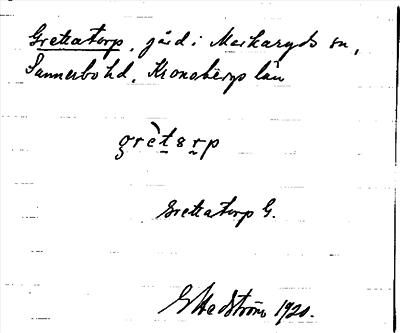 Grettatorp, gård i Markaryds sn,
Sunnerbo hd, Kronobergs län
grètərp
Grettatorp G.
G Hedström 1920.